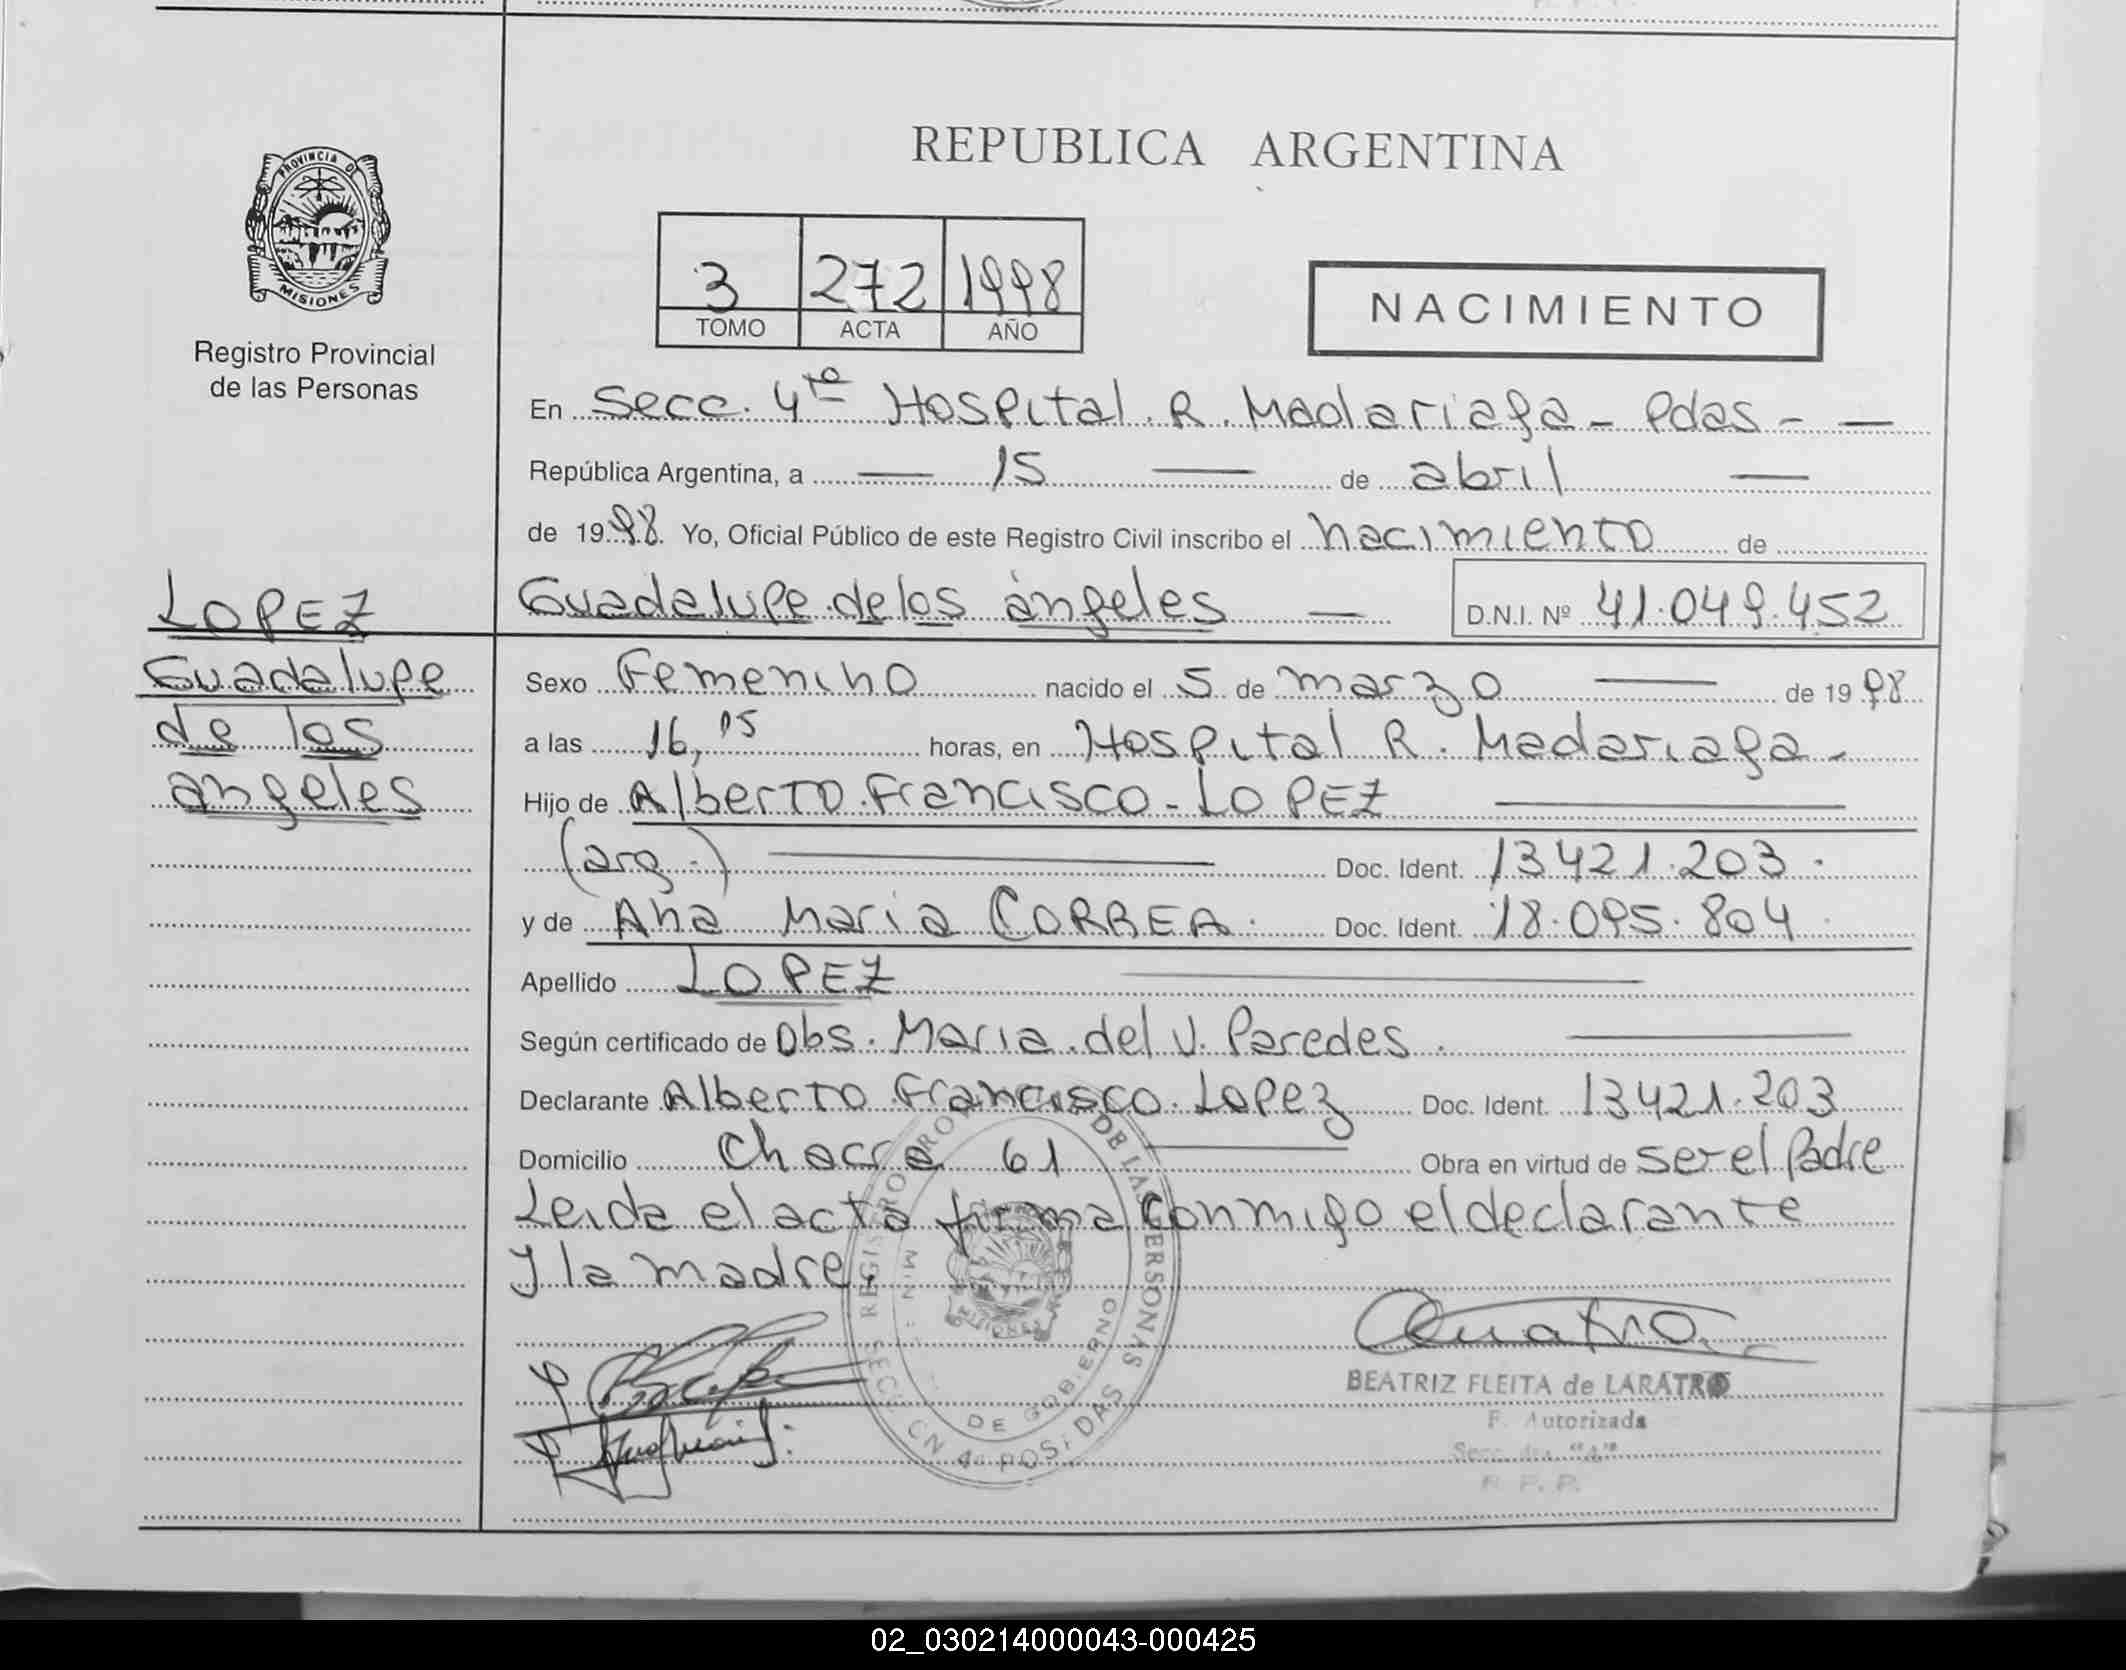 PROVINCIA DE
MISIONES
Registro Provincial
de las Personas
LOPEZ
Guadalupe
de los
angeles
REPUBLICA ARGENTINA
3 272 1998
TOMO ACTA AÑO
NACIMIENTO
En Secc. 4ta Hospital R. Madariaga - Pdas -
República Argentina, a 15 de abril
de 1998. Yo, Oficial Público de este Registro Civil inscribo el nacimiento de
Guadalupe de los ángeles D.N.I. Nº 41.049.452
Sexo Femenino nacido el 5 de marzo de 1998
a las 16,15 horas, en Hospital R. Madariaga -
Hijo de Alberto Francisco - LOPEZ
(arg.) Doc. Ident. 13421.203.
y de Ana Maria CORREA. Doc. Ident. 18.095.804.
Apellido LOPEZ
Según certificado de Obs. Maria del V. Paredes.
Declarante Alberto Francisco Lopez Doc. Ident. 13421.203
Domicilio Chacra 61 Obra en virtud de ser el Padre
Leida el acta firma conmigo el declarante
y la madre.
REGISTRO PROV DE LAS PERSONAS
DE GOBIERNO
SECCN 4a POSADAS
MISIONES
BEATRIZ FLEITA de LARATRO
F. Autorizada
Secc. 4ta "A"
R. P. P.
02_030214000043-000425